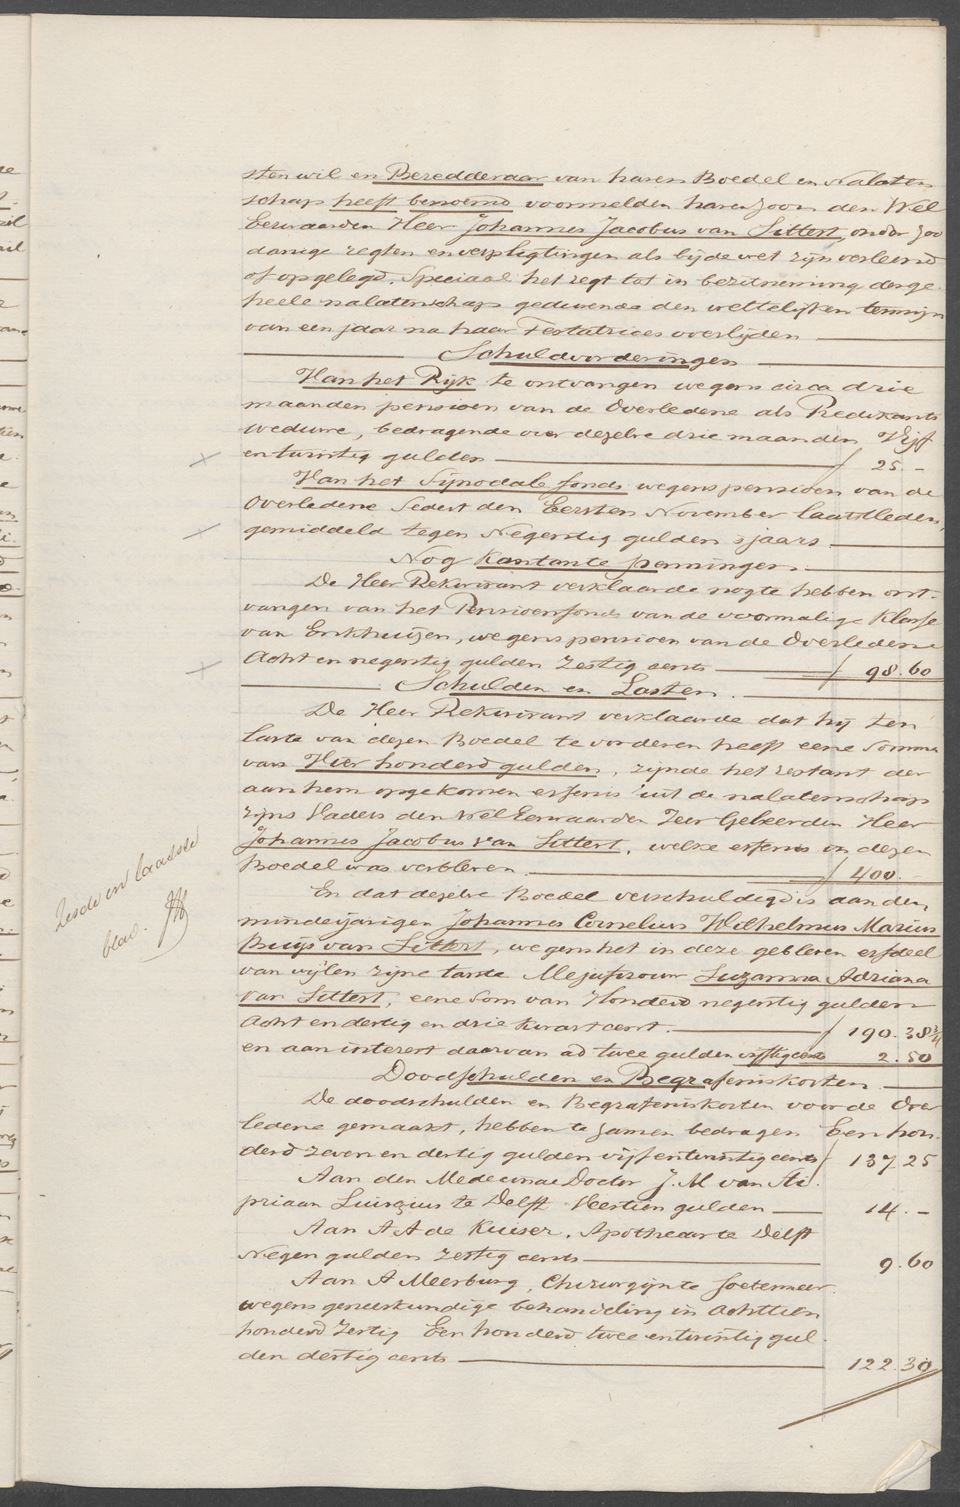 sten wil en Beredderaar van haren Boedel en Nalaten
schap heeft benoemd voormelden haren zoon den Wel
Eerwaarden Heer Johannes Jacobus van Sittert, onder zoo
danige regten en verpligtingen als bij de wet zijn verleend
of opgelegd. Speciaal het regt tot in bezitneming der ge
heele nalatenschap gedurende den wettelijken termijn
van een jaar na haar Testatrices overlijden
Schuldvorderingen
Van het Rijk te ontvangen wegens circa drie
maanden pensioen van de Overledene als Predikants
weduwe, bedragende over dezelve drie maanden Vijf
en twintig gulden ƒ 25.-
Van het Synodale fonds wegens pensioen van de
Overledene Sedert den Eersten November laatstleden,
gemiddeld tegen Negentig gulden 's jaars
Nog Kontante penningen.
De Heer Rekwirant verklaarde nog te hebben ont-
vangen van het Pensioenfonds van de voormalige Klasse
van Enkhuizen, wegens pensioen van de Overledene
Acht en negentig gulden Zestig cents ƒ 98.60
Schulden en Lasten.
De Heer Rekwirant verklaarde dat hij ten
laste van dezen Boedel te vorderen heeft eene Somma
van Vier honderd gulden, zijnde het restant der
aan hem opgekomen erfenis uit de nalatenschap
zijns Vaders den Wel Eerwaarden Zeer Geleerden Heer
Johannes Jacobus van Sittert, welke erfenis in dezen
Boedel was verbleven. ƒ 400.-
Zesde en laatste
blad.
En dat dezelve Boedel verschuldigd is aan den
minderjarigen Johannes Cornelius Wilhelmus Marius
Buijs van Sittert, wegens het in deze gebleven erfdeel
van wijlen zijne tante Mejufvrouw Suzanna Adriana
van Sittert, eene Som van Honderd negentig gulden
Acht en dertig en drie kwart cent. ƒ 190.38¾
en aan interest daarvan ad twee gulden vijftig cents 2.50
Doodschulden en Begrafeniskosten.
De doodschulden en Begrafeniskosten voor de Over
ledene gemaakt, hebben te zamen bedragen Een hon-
derd zeven en dertig gulden vijf en twintig cents ƒ 137.25
Aan den Medecinae Doctor J. M van
te Delft Veertien gulden 14.-
Aan A A de Kuiser, Apothecar te Delft
Negen gulden zestig cents 9.60
Aan A Meerburg, Chirurgijn te Soetermeer
wegens geneeskundige behandeling in Achttien
honderd Veertig Een honderd twee en twintig gul-
den dertig cents 122.30